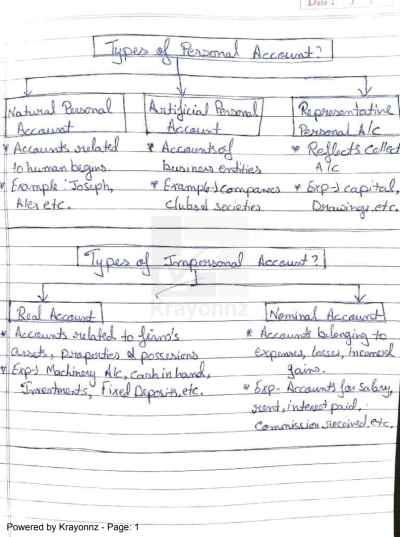 Date : / /
Types of Personal Account?
Natural Personal
Account
* Accounts related
to human begins.
* Example : Joseph,
Alex etc.
Artificial Personal
Account
* Accounts of
business entities
* Example→companies
clubs & societies
Representative
Personal A/c
* Reflects Collect
A/c
* Exp→capital,
Drawings, etc.
Types of Impersonal Account?
Real Account
* Accounts related to firm's
assets, properties & possessions
* Exp→ Machinery A/c, cash in hand,
Investments, Fixed Deposits, etc.
Nominal Account
* Accounts belonging to
expenses, losses, Incomes &
gains.
* Exp- Accounts for salary,
rent, interest paid,
commission received, etc.
Krayonnz
Powered by Krayonnz - Page: 1